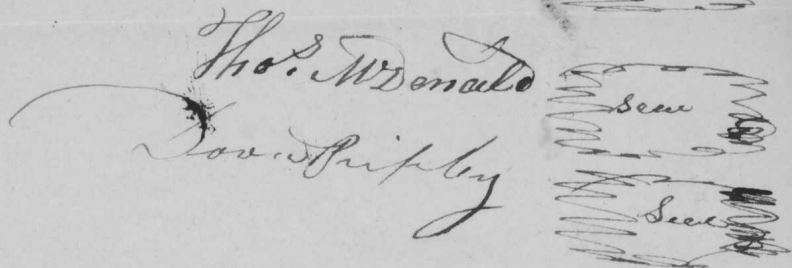 Thos. McDonald seal
David Ripley seal